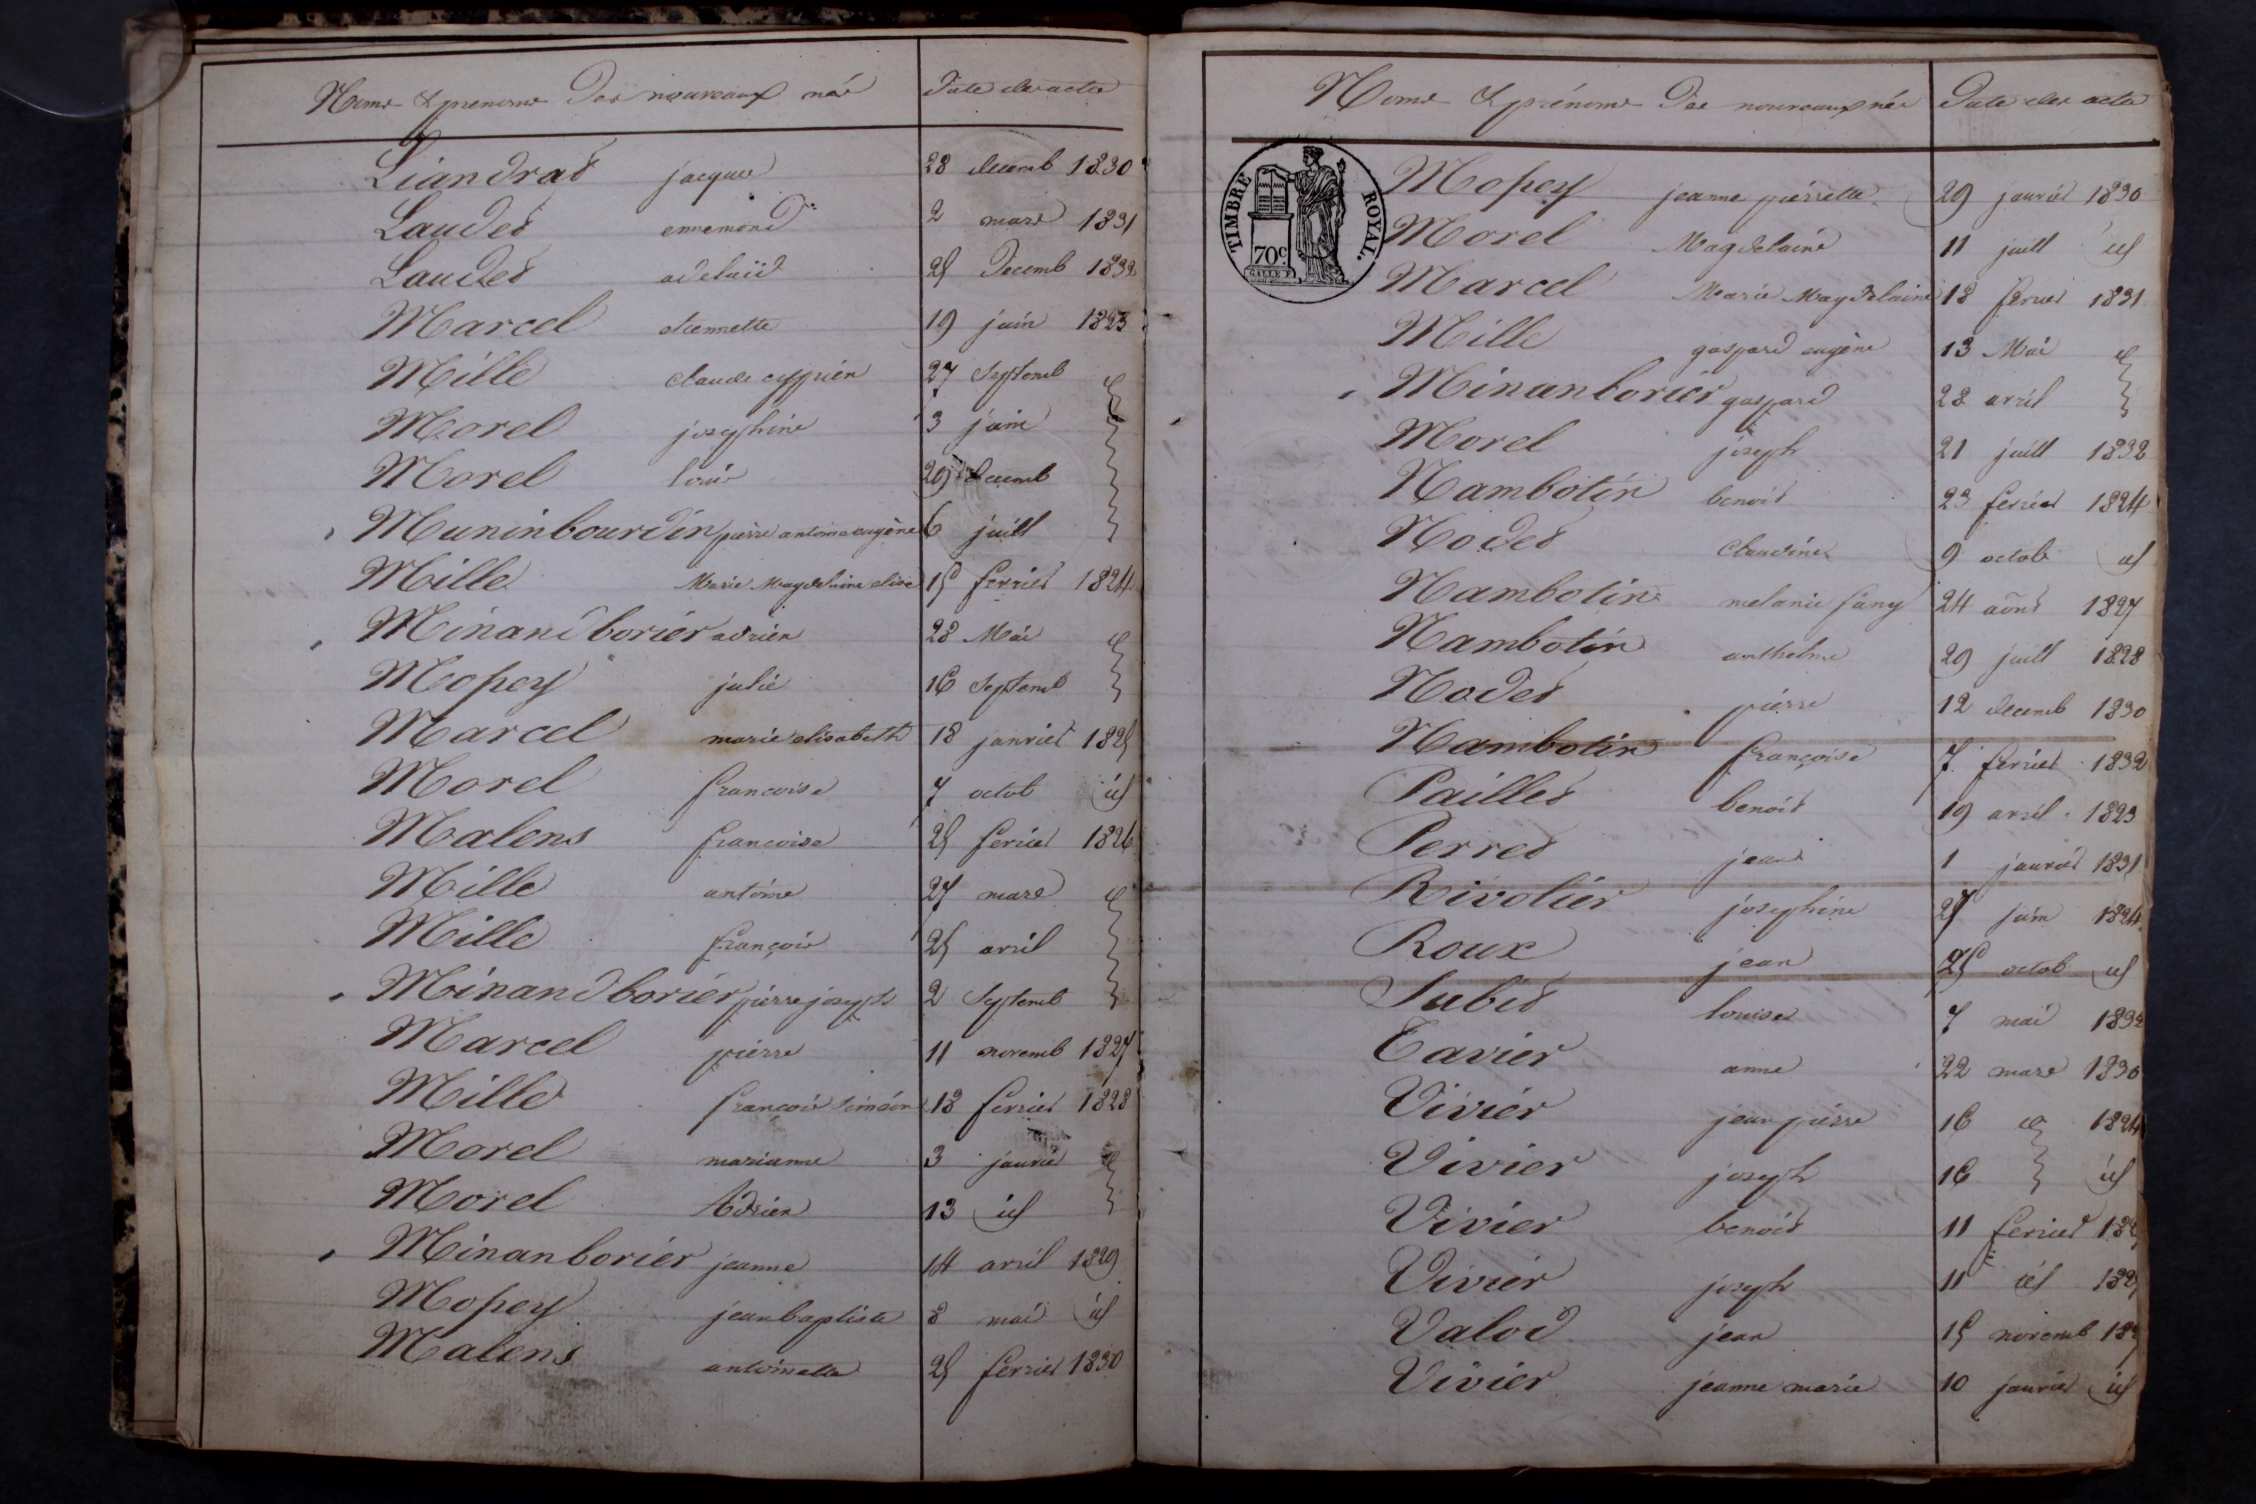 Noms & prenoms des nouveaux nés Date des actes
Liandrat jacques 28 decemb 1830
Laudet ennemond 2 mars 1831
Laudet adelaïd 25 Decemb 1832
Marcel etiennette 19 juin 1823
Mille claude cyprien 27 Septemb
Morel josephine 3 juin
Morel louis 29 decemb
Muninbourdin pierre antoine eugène 6 juill
Mille Marie Magdelaine elise 15 fevrier 1824
Minandborier adrien 28 Mai
Mopey julie 16 Septemb
Marcel marie elisabeth 18 janvier 1825
Morel francoise 7 octob id
Malens francoise 25 fevrier 1826
Mille antoine 27 mars
Mille françois 25 avril
Minandborier pierre joseph 2 Septemb
Marcel pierre 11 novemb 1827
Mille françois siméon 18 fevrier 1828
Morel marianne 3 janvier
Morel Adrien 13 id
Minanborier jeanne 14 avril 1829
Mopey jean baptiste 8 mai id
Malens antoinette 25 fevrier 1830
Noms & prénoms des nouveaux nés Date des actes
TIMBRE ROYAL.
70c.
Mopey jeanne pierrette 29 janvier 1830
Morel Magdelaine 11 juill id
Marcel Marie Magdelaine 18 fevrier 1831
Mille gaspard eugène 13 Mai
Minanborier gaspard 28 avril
Morel joseph 21 juill 1832
Nambotin benoit 23 fevrier 1824
Nodet claudine 9 octob id
Nambotin melanie fany 24 août 1827
Nambotin anthelme 29 juill 1828
Nodet pierre 12 decemb 1830
Nambotin françoise 7 fevrier 1832
Paillet benoit 19 avril 1823
Perret jean 1 janvier 1831
Rivolier josephine 27 juin 1824
Roux jean 25 octob id
Subit louise 7 mai 1832
Tavier anne 22 mars 1830
Vivier jean pierre 16 1824
Vivier joseph 16 id
Vivier benoit 11 fevrier
Vivier joseph 11 id
Valod jean 15 novemb
Vivier jeanne marie 10 janvier id